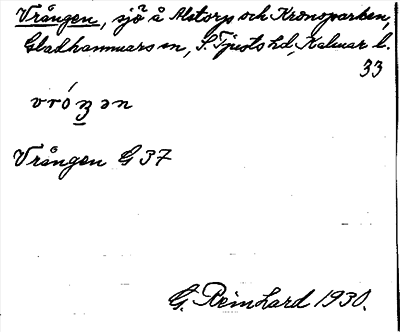 Vrången, sjö å Alstorp och Kronoparken,
Gladhammars sn, S. Tjusts hd, Kalmar l.
33
vróŋən
Vrången G 37
G. Reinhard 1930.